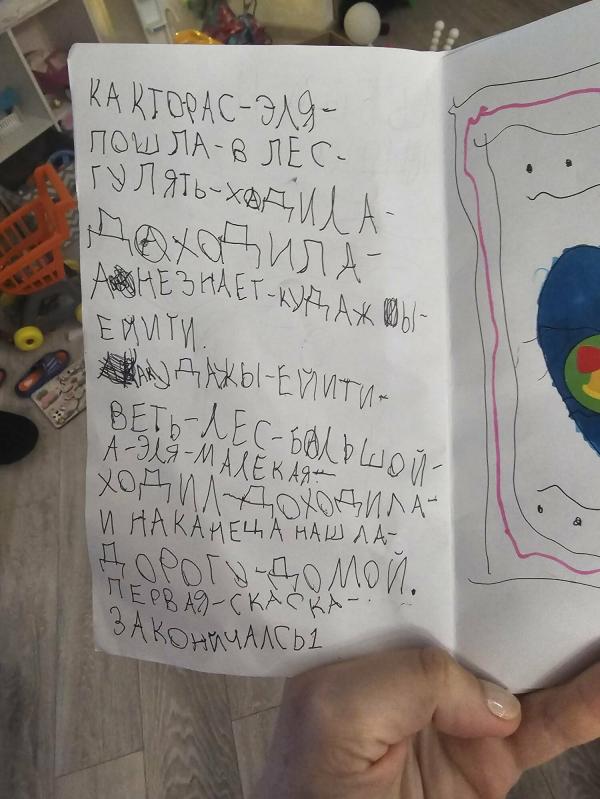 КА КТОРАС-ЭЛЯ-
ПОШ ЛА-В ЛЕС-
ГУЛЯТЬ-ХАДИЛА-
ДАХОДИЛА-
А НЕЗНАЕТ-КУДАЖ Ы-
ЕЙИТИ.
ДАЖЫ-ЕЙИТИ-
ВЕТЬ-ЛЕС-БАЛЬШОЙ-
А-ЭЛЯ-МАЛЕКАЯ-
ХОДИЛ-ДОХОДИЛА-
И НАКАНЕЦА НАШ ЛА-
ДОРОГУ-ДОМОЙ.
ПЕРВАЯ-СКАСКА-
ЗАКОНИЧАЛСЬ1